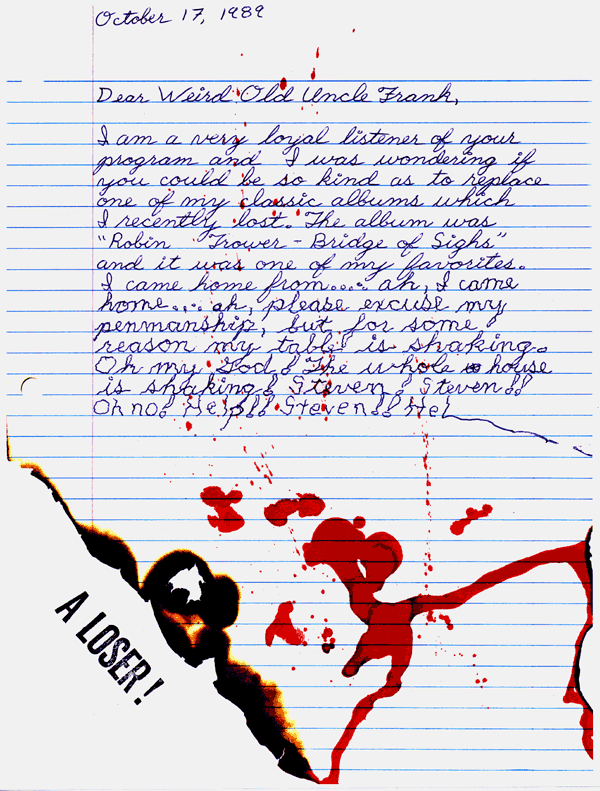 October 17, 1989
Dear Weird Old Uncle Frank,
I am a very loyal listener of your
program and I was wondering if
you could be so kind as to replace
one of my classic albums which
I recently lost. The album was
"Robin Trower - Bridge of Sighs"
and it was one of my favorites.
I came home from.... ah, I came
home.... ah, please excuse my
penmanship, but for some
reason my table is shaking.
Oh my God! The whole house
is shaking! Steven! Steven!!
Oh no! Help!! Steven!! Hel
A LOSER!